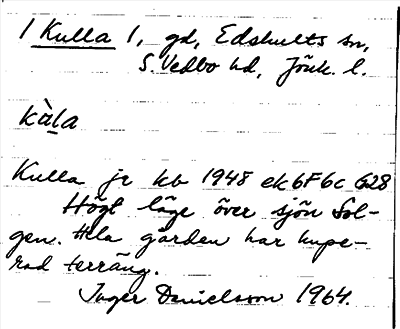 1 Kulla 1, gd, Edshults sn,
S. Vedbo hd, Jönk. l.
kàla
Kulla jr kb 1948 ek 6F6c G28
Högt läge över sjön Sol-
gen. Hela gården har kupe-
rad terräng.
Inger Danielsson 1964.